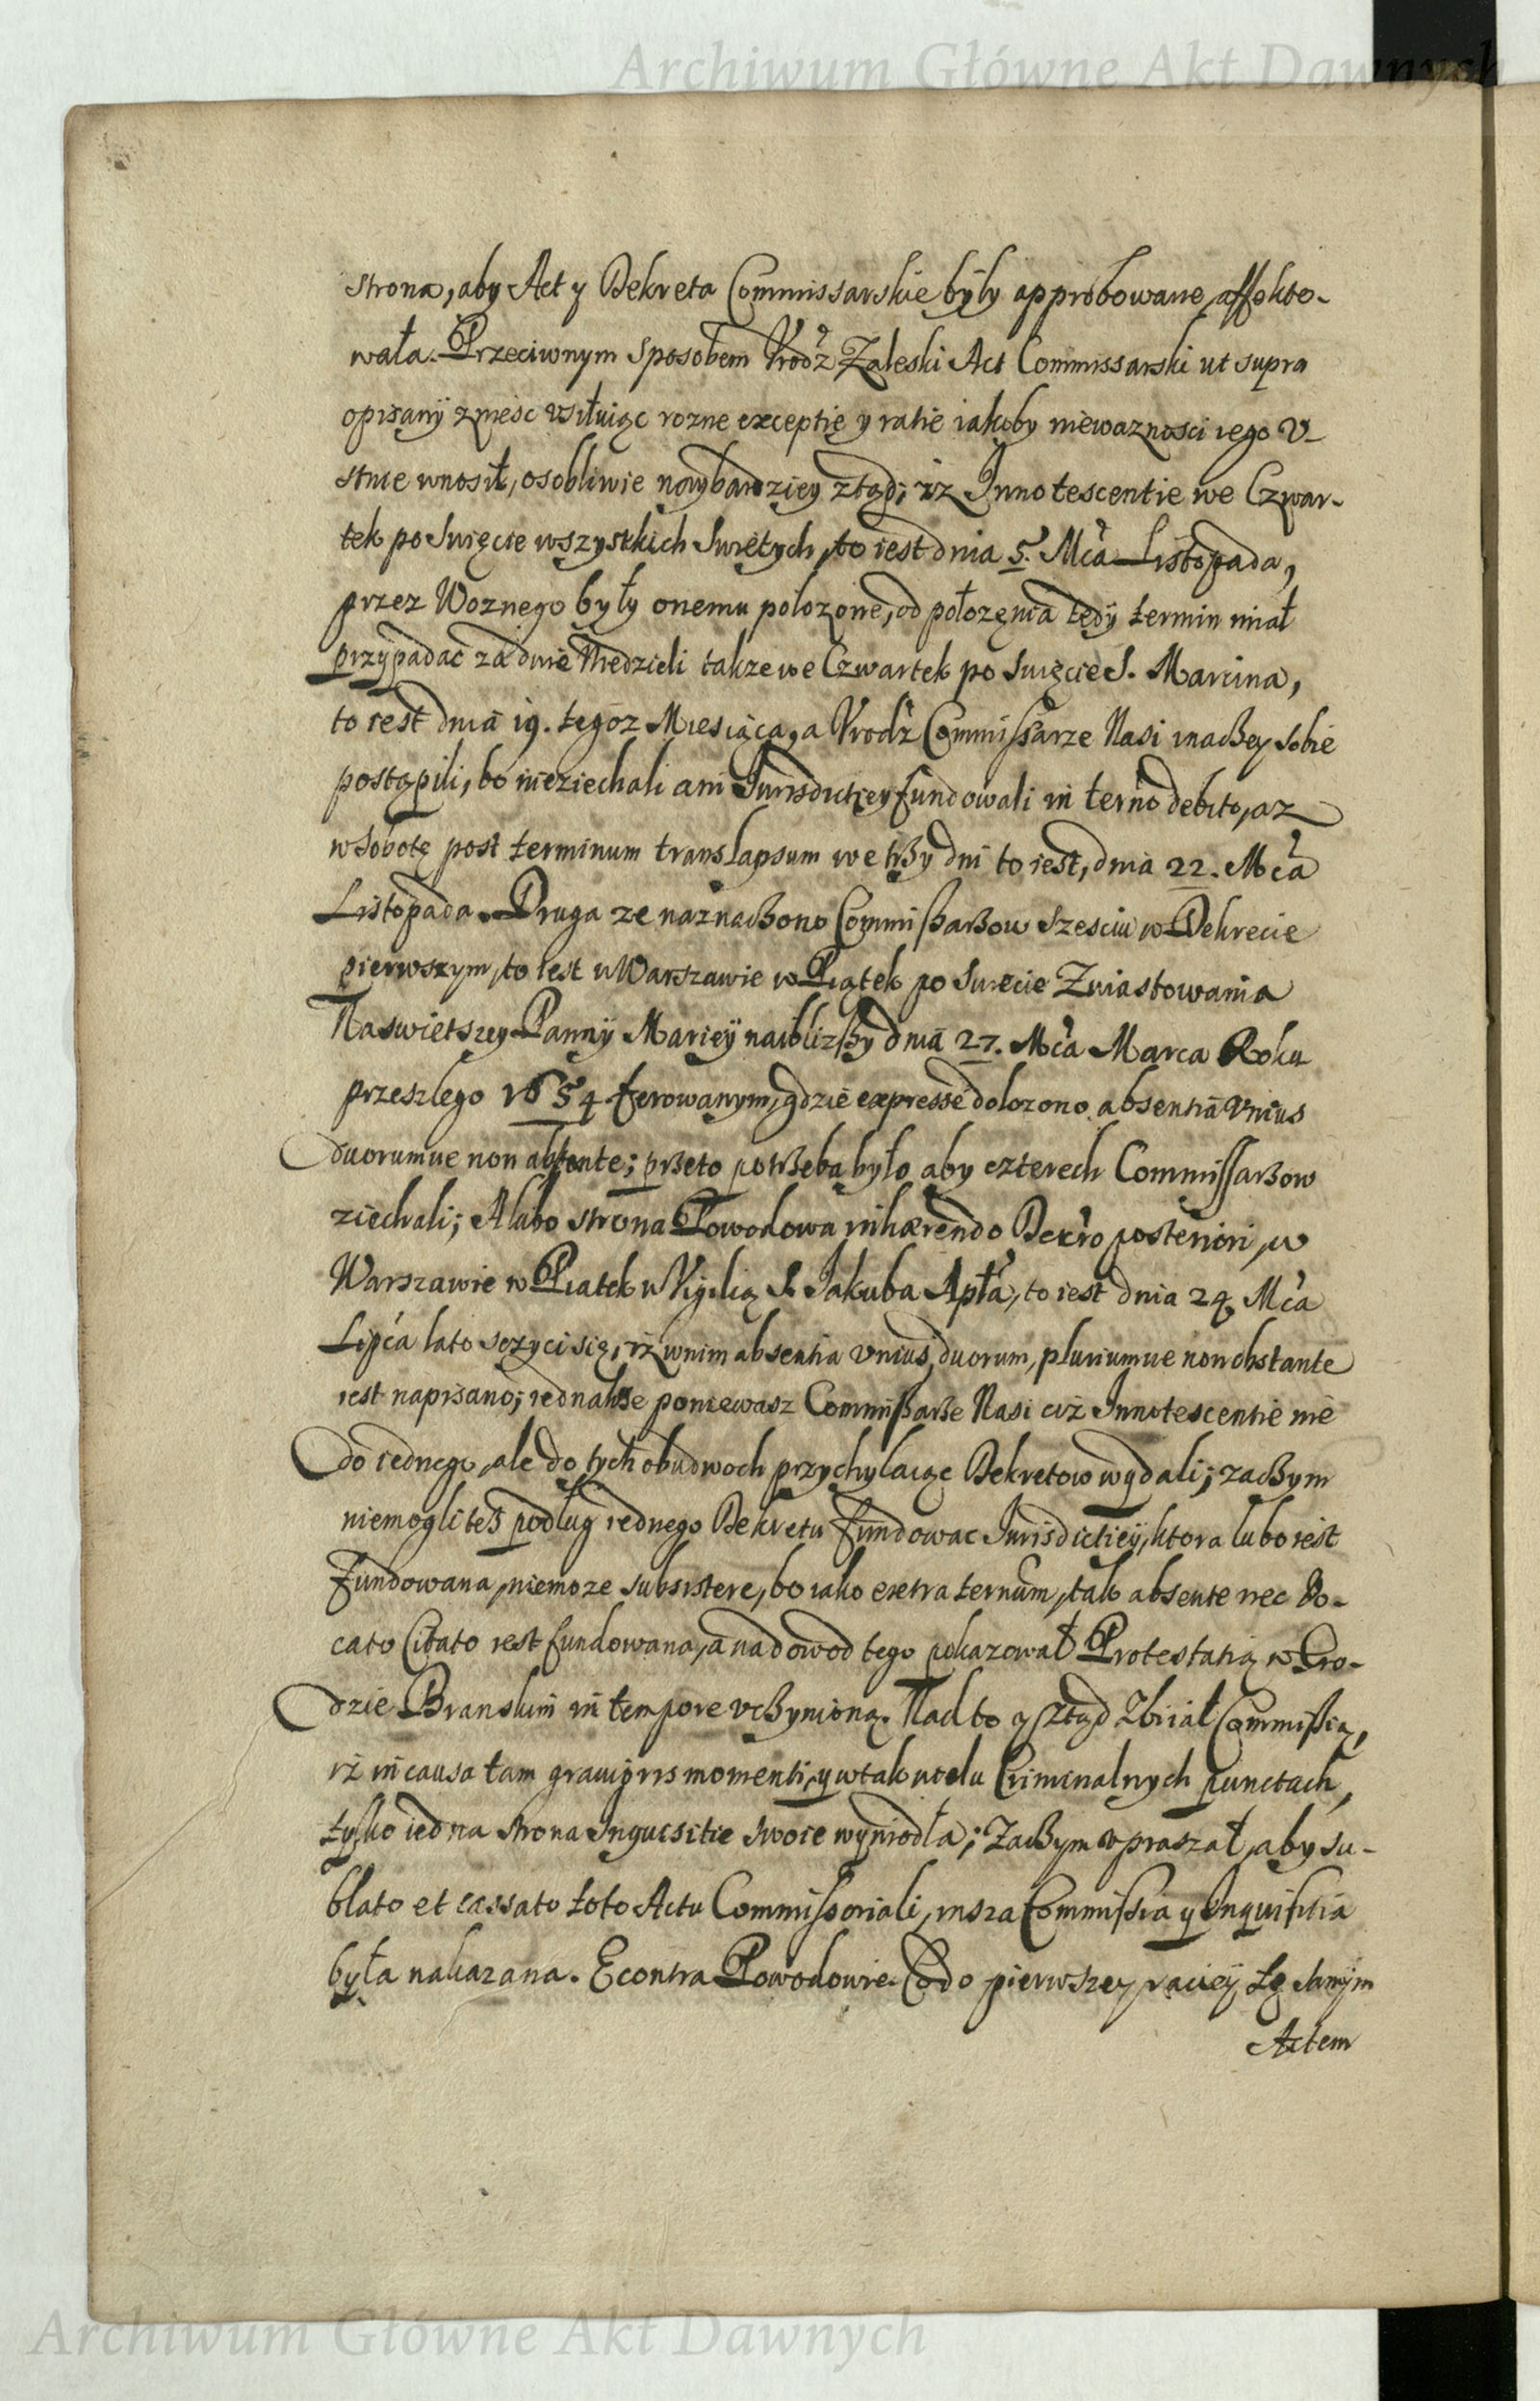 Archiwum Główne Akt Dawnych
strona, aby Act y Dekreta Commissarskie były approbowane, affekto-
wała. Przeciwnym Sposobem Vrodz Zaleski Act Commissarski ut supra
opisany znieść vsiłuiąc rozne exceptie y ratie iakoby niewaznosci iego V-
stnie wnosił, osobliwie naybardziey ztąd; iz Innotescentie we Czwar-
tek po Swięcie wszystkich Swiętych, to iest dnia 5. Mca Listopada,
przez Woznego były onemu połozone, od połozęnia tedy termin miał
przypadać za dwie Niedzieli takze we Czwartek po Swięcie S. Marcina,
to iest dnia 19. tegoz Miesiąca, a Vrodz Commissarze Nasi inaczey sobie
postąpili, bo nieziechali ani Jurisdictiey fundowali in termo debito, az
w Sobotę post terminum translapsum we trzy dni to iest, dnia 22. Mca
Listopada. Druga ze naznaczono Commissarzow Szesciu w Dekrecie
pierwszym, to iest w Warszawie w Piątek po Swięcie Zwiastowania
Naswietszey Panny Mariey naiblizszy dnia 27. Mca Marca Roku
przeszlego 1654 ferowanym, gdzie expresse dolozono absentia vnius
duorumue non obstante; przeto potrzeba było aby czterech Commissarzow
ziechali; A lubo strona Powodowa inhærendo Decro posteriori, w
Warszawie w Piatek w Vigilią S. Jakuba Apła, to iest dnia 24. Mca
Lipca lato sczyci się, iz w nim absentia vnius, duorum, pluriumue non obstante
iest napisano; iednakze poniewasz Commissarze Nasi ciz Innotescentie nie
do iednego, ale do tych obudwoch przychylaiąc Dekretow wydali; zaczym
niemogli tesz podług iednego Dekretu fundowac Jurisdictiey, ktora lubo iest
fundowana, niemoze subsistere, bo iako extra ternum, tak absente nec Vo-
cato Citato iest fundowana, a na dowod tego pokazował Protestatią w Gro-
dzie Branskim in tempore vczynioną. Nad to y ztąd zbiiał Commissią,
iz in causa tam grauioris momenti, y w tak wielu Criminalnych punctach,
tylko iedna strona Inquisitie swoie wyniodła; Zaczym vpraszał, aby su-
blato et cassato toto Actu Commissoriali, insza Commissia y Inquisitia
była nakazana. Econtra Powodowie. Co do pierwszey raciey tą samym
Actem
Archiwum Główne Akt Dawnych